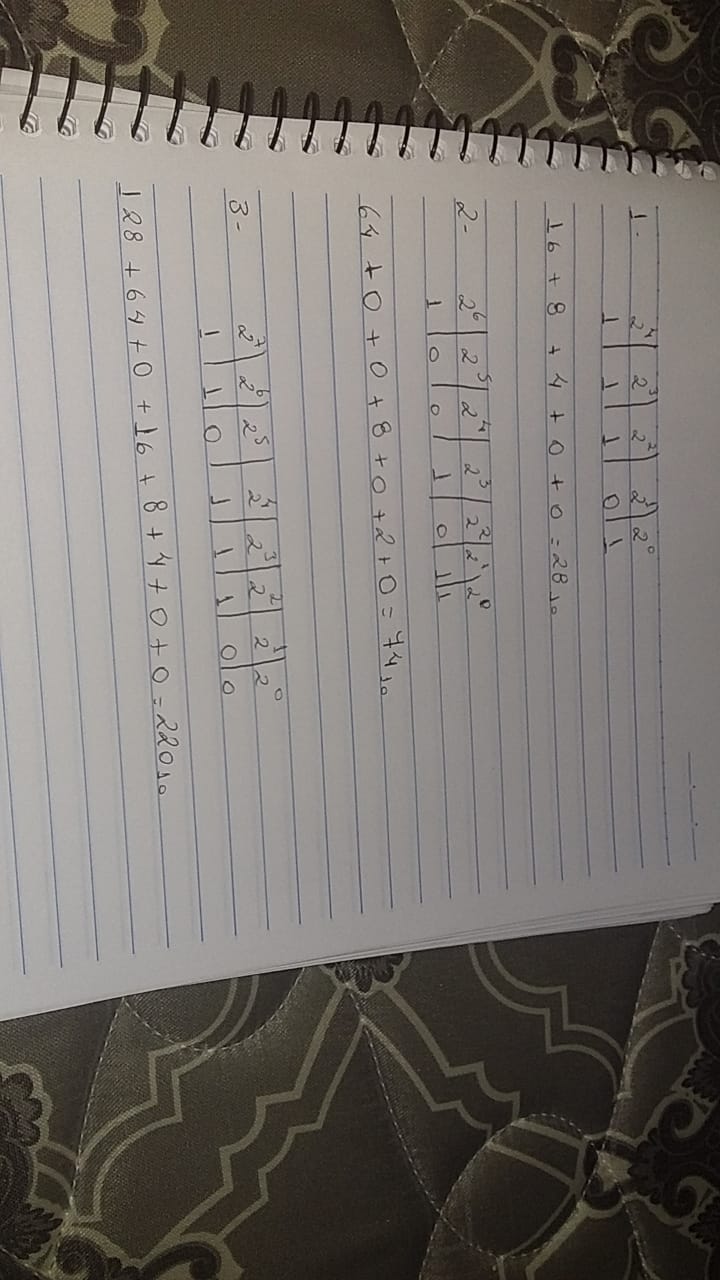 1. 2⁴ | 2³ | 2² | 2¹ | 2⁰
1 | 1 | 1 | 0 | 1
16 + 8 + 4 + 0 + 0 = 28₁₀
2- 2⁶ | 2⁵ | 2⁴ | 2³ | 2² | 2¹ | 2⁰
1 | 0 | 0 | 1 | 0 | 1 | 1
64 + 0 + 0 + 8 + 0 + 2 + 0 = 74₁₀
3- 2⁷ | 2⁶ | 2⁵ | 2⁴ | 2³ | 2² | 2¹ | 2⁰
1 | 1 | 0 | 1 | 1 | 1 | 0 | 0
128 + 64 + 0 + 16 + 8 + 4 + 0 + 0 = 220₁₀